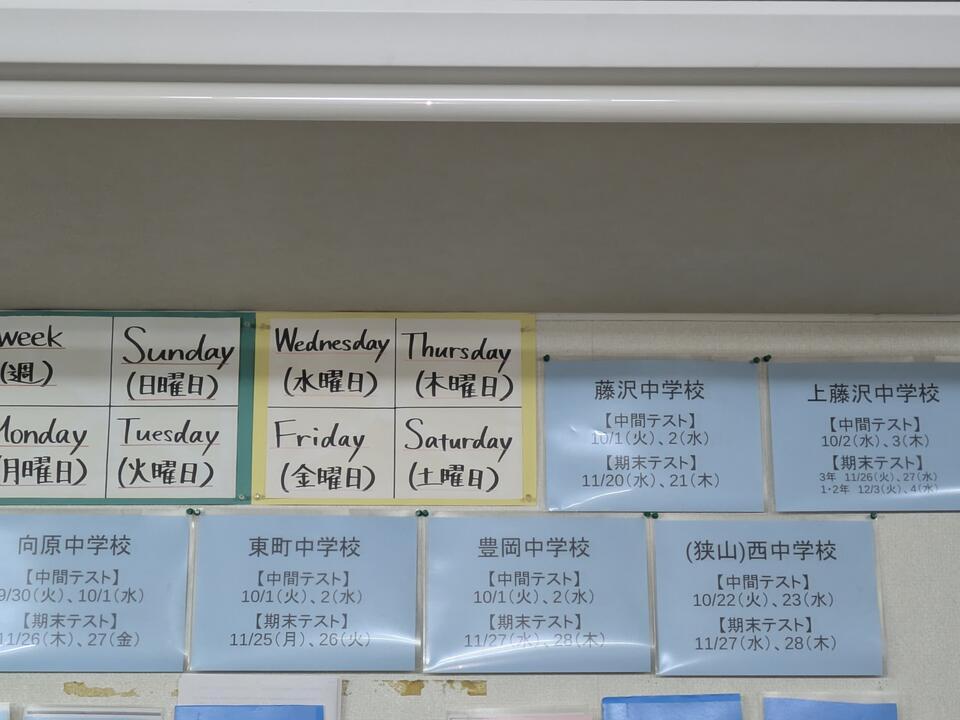 week
(週)
Sunday
(日曜日)
Monday
(月曜日)
Tuesday
(火曜日)
Wednesday
(水曜日)
Thursday
(木曜日)
Friday
(金曜日)
Saturday
(土曜日)
藤沢中学校
【中間テスト】
10/1(火)、2(水)
【期末テスト】
11/20(水)、21(木)
上藤沢中学校
【中間テスト】
10/2(水)、3(木)
【期末テスト】
3年 11/26(火)、27(水)
1・2年 12/3(火)、4(水)
向原中学校
【中間テスト】
9/30(火)、10/1(水)
【期末テスト】
11/26(木)、27(金)
東町中学校
【中間テスト】
10/1(火)、2(水)
【期末テスト】
11/25(月)、26(火)
豊岡中学校
【中間テスト】
10/1(火)、2(水)
【期末テスト】
11/27(水)、28(木)
(狭山)西中学校
【中間テスト】
10/22(火)、23(水)
【期末テスト】
11/27(水)、28(木)